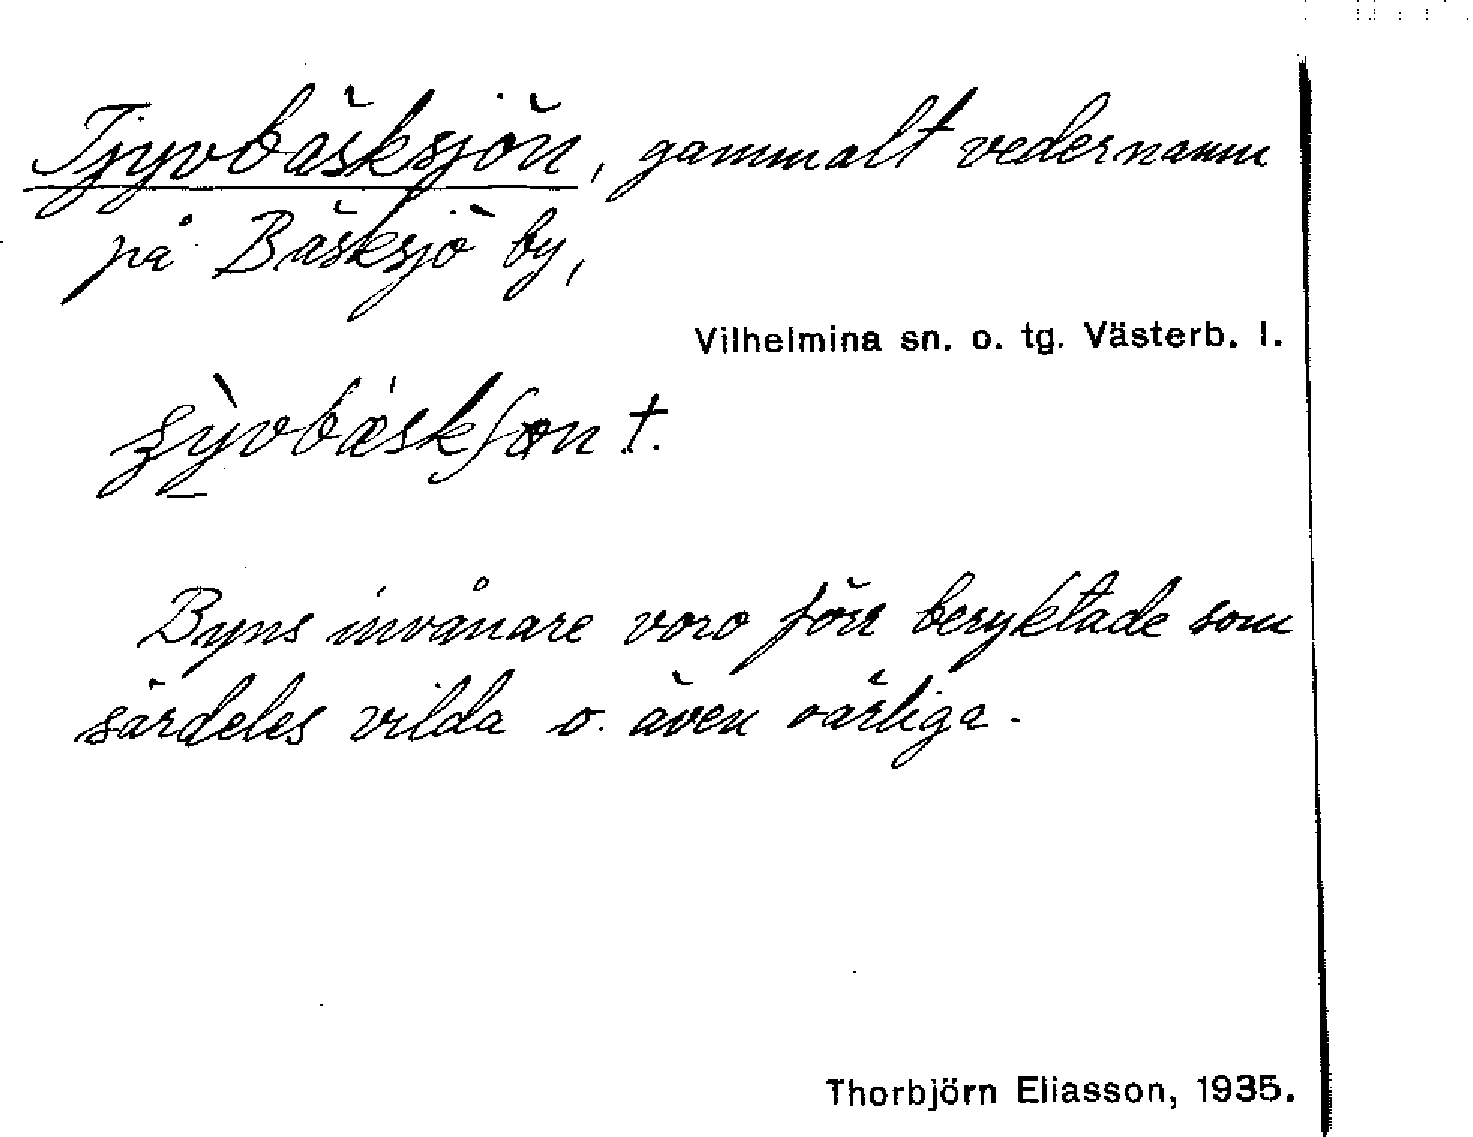 Tjyvbäsksjön, gammalt vedernamn
på Bäsksjö by,
Vilhelmina sn. o. tg. Västerb. l.
Byns invånare voro förr beryktade som
särdeles vilda o. även oärliga.
Thorbjörn Eliasson, 1935.